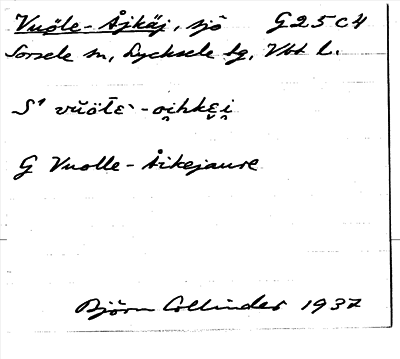 Vuǫle-Åjkäj, sjö G25c4
Sorsele sn, Lycksele lg, Vbt l.
G Vuolle-Åikejaure
Björn Collinder 1937